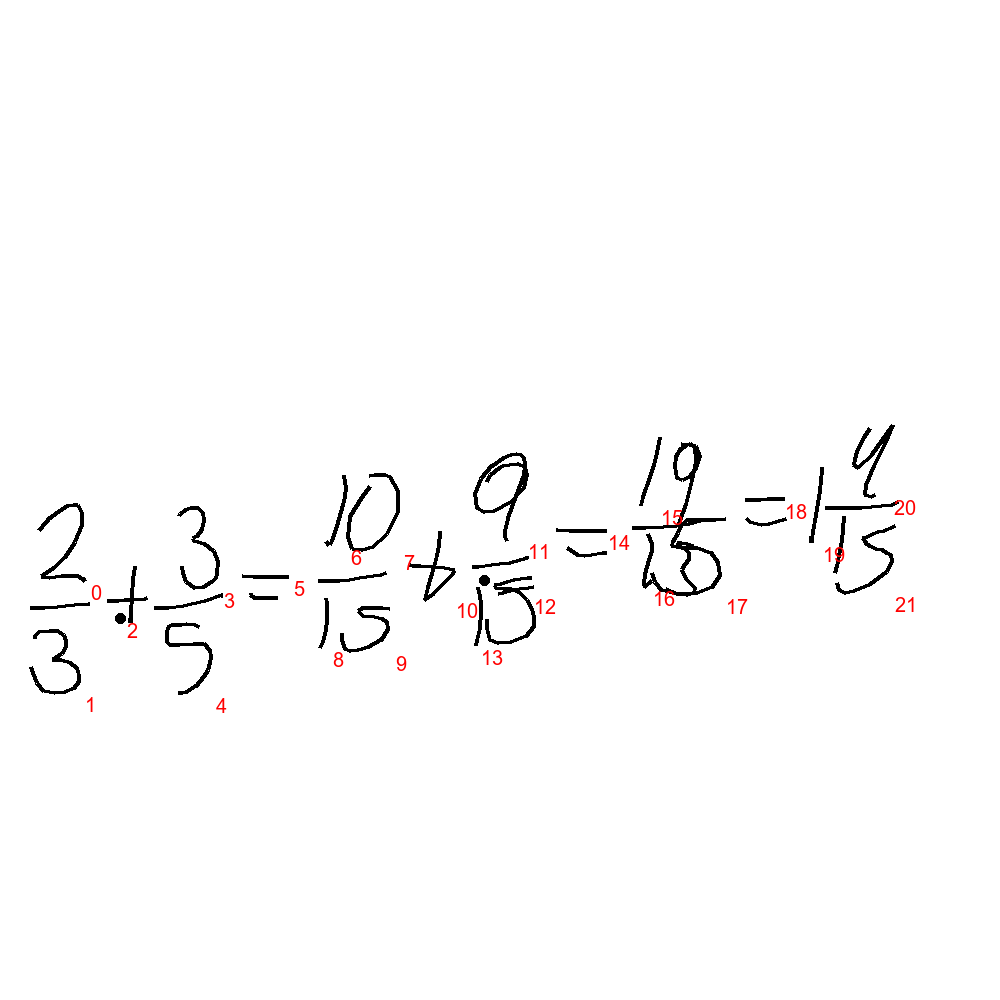 2/3 + 3/5 = 10/15 + 9/15 = 19/15 = 1 4/15
0 1 2 3 4 5 6 7 8 9 10 11 12 13 14 15 16 17 18 19 20 21